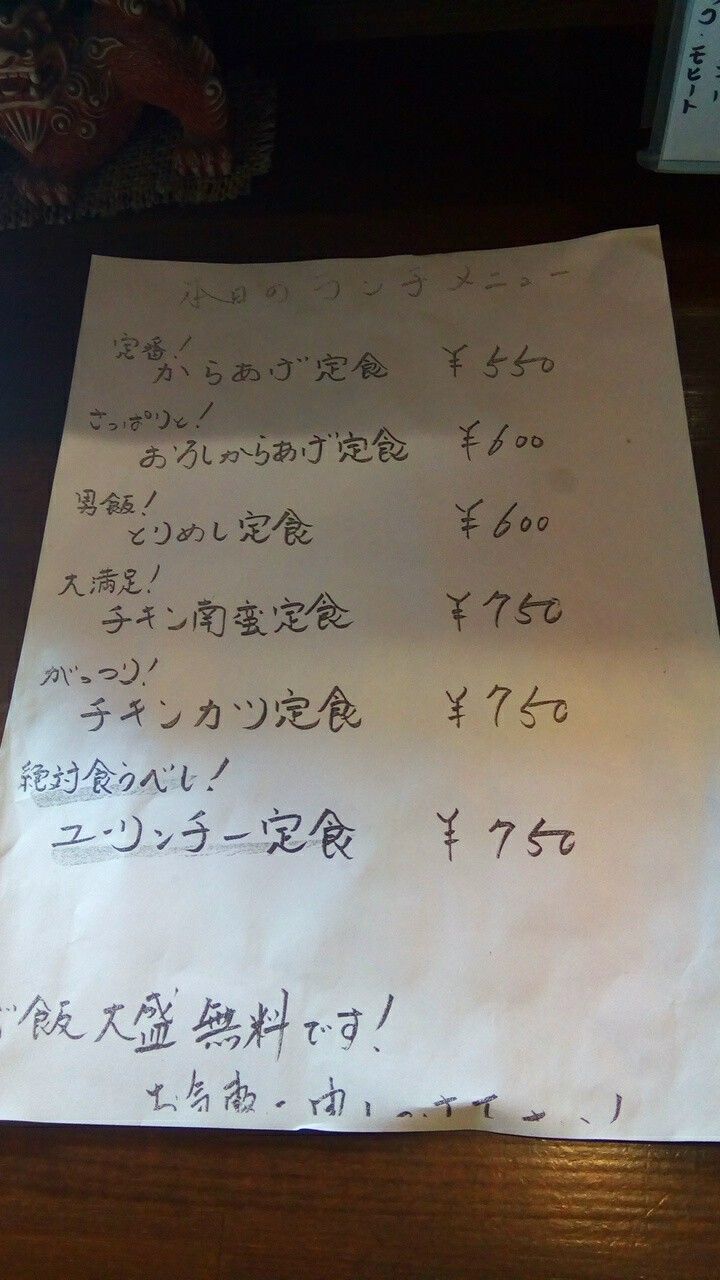 モヒート
本日のランチメニュー
定番!
からあげ定食 ¥550
さっぱりと!
おろしからあげ定食 ¥600
男飯!
とりめし定食 ¥600
大満足!
チキン南蛮定食 ¥750
がっつり!
チキンカツ定食 ¥750
絶対食うべし!
ユーリンチー定食 ¥750
ご飯大盛無料です!
お気軽